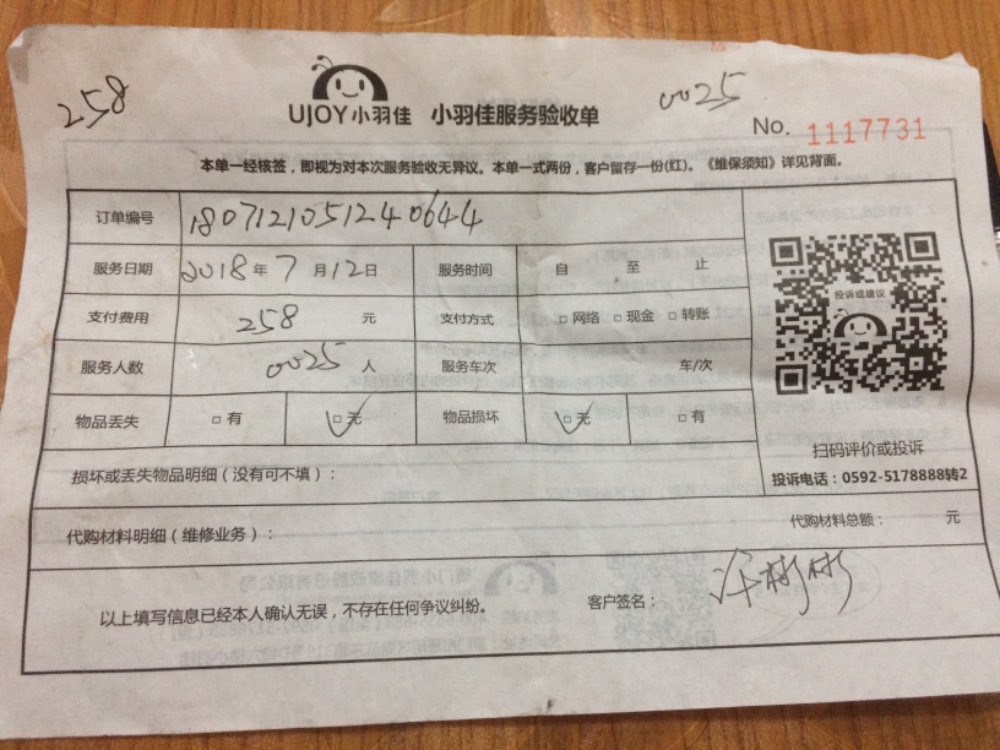 258
0025
UJOY小羽佳 小羽佳服务验收单
No. 1117731
本单一经核签，即视为对本次服务验收无异议。本单一式两份，客户留存一份(红)。《维保须知》详见背面。
订单编号 1807121051240644
服务日期 2018年7月12日 服务时间 自 至 止
支付费用 258 元 支付方式 □网络 □现金 □转账
服务人数 0025 人 服务车次 车/次
物品丢失 □有 □无 物品损坏 □无 □有
投诉或建议
扫码评价或投诉
投诉电话：0592-5178888转2
损坏或丢失物品明细（没有可不填）：
代购材料明细（维修业务）： 代购材料总额： 元
以上填写信息已经本人确认无误，不存在任何争议纠纷。 客户签名：